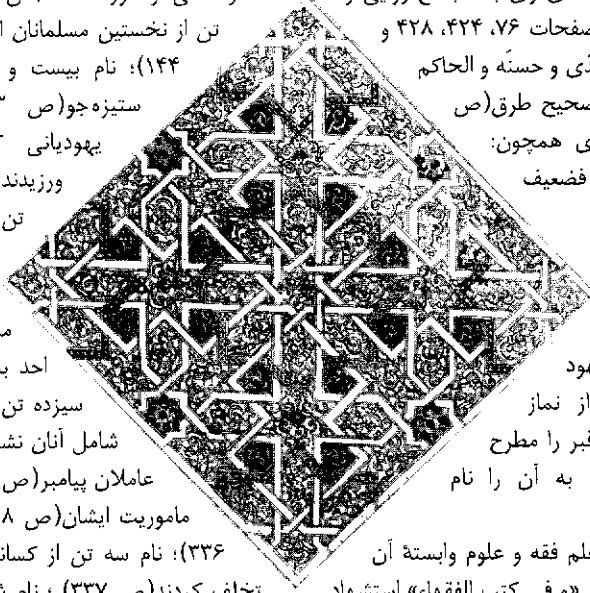 صفحات ۷۶، ۴۲۴، ۴۲۸ و
ذی و حسنّه و الحاکم
صحیح طرق(ص
ی همچون:
فضعیف
هود
از نماز
قبر را مطرح
به آن را نام
علم فقه و علوم وابستهٔ آن
«و فی کتب الفقهاء» استشهاد
تن از نخستین مسلمانان ا
۱۴۴)؛ نام بیست و
ستیزه‌جو(ص
یهودیانی
ورزیدند
تن
احد ب
سیزده تن
شامل آنان نش
عاملان پیامبر(ص
ماموریت ایشان(ص ۸
۳۳۶)؛ نام سه تن از کسان
تخلف کردند(ص ۳۳۷)؛ نام